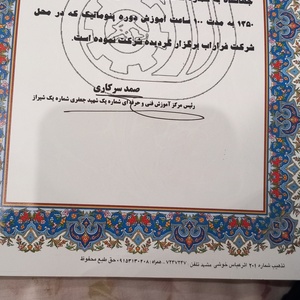 ۱۳۵۰ به مدت ۱۰۰ ساعت آموزش دوره پنوماتیک که در محل
شرکت فرازآب برگزار گردیده شرکت نموده است.
صمد سرکاری
رئیس مرکز آموزش فنی و حرفه ای شماره یک شهید جعفری شماره یک شیراز
تذهیب شماره ۲۰۱ اثر عباس خوشی مشهد تلفن: ۷۲۴۷۲۴۷ ، همراه: ۰۹۱۵۳۱۳۰۲۰۸ حق طبع محفوظ